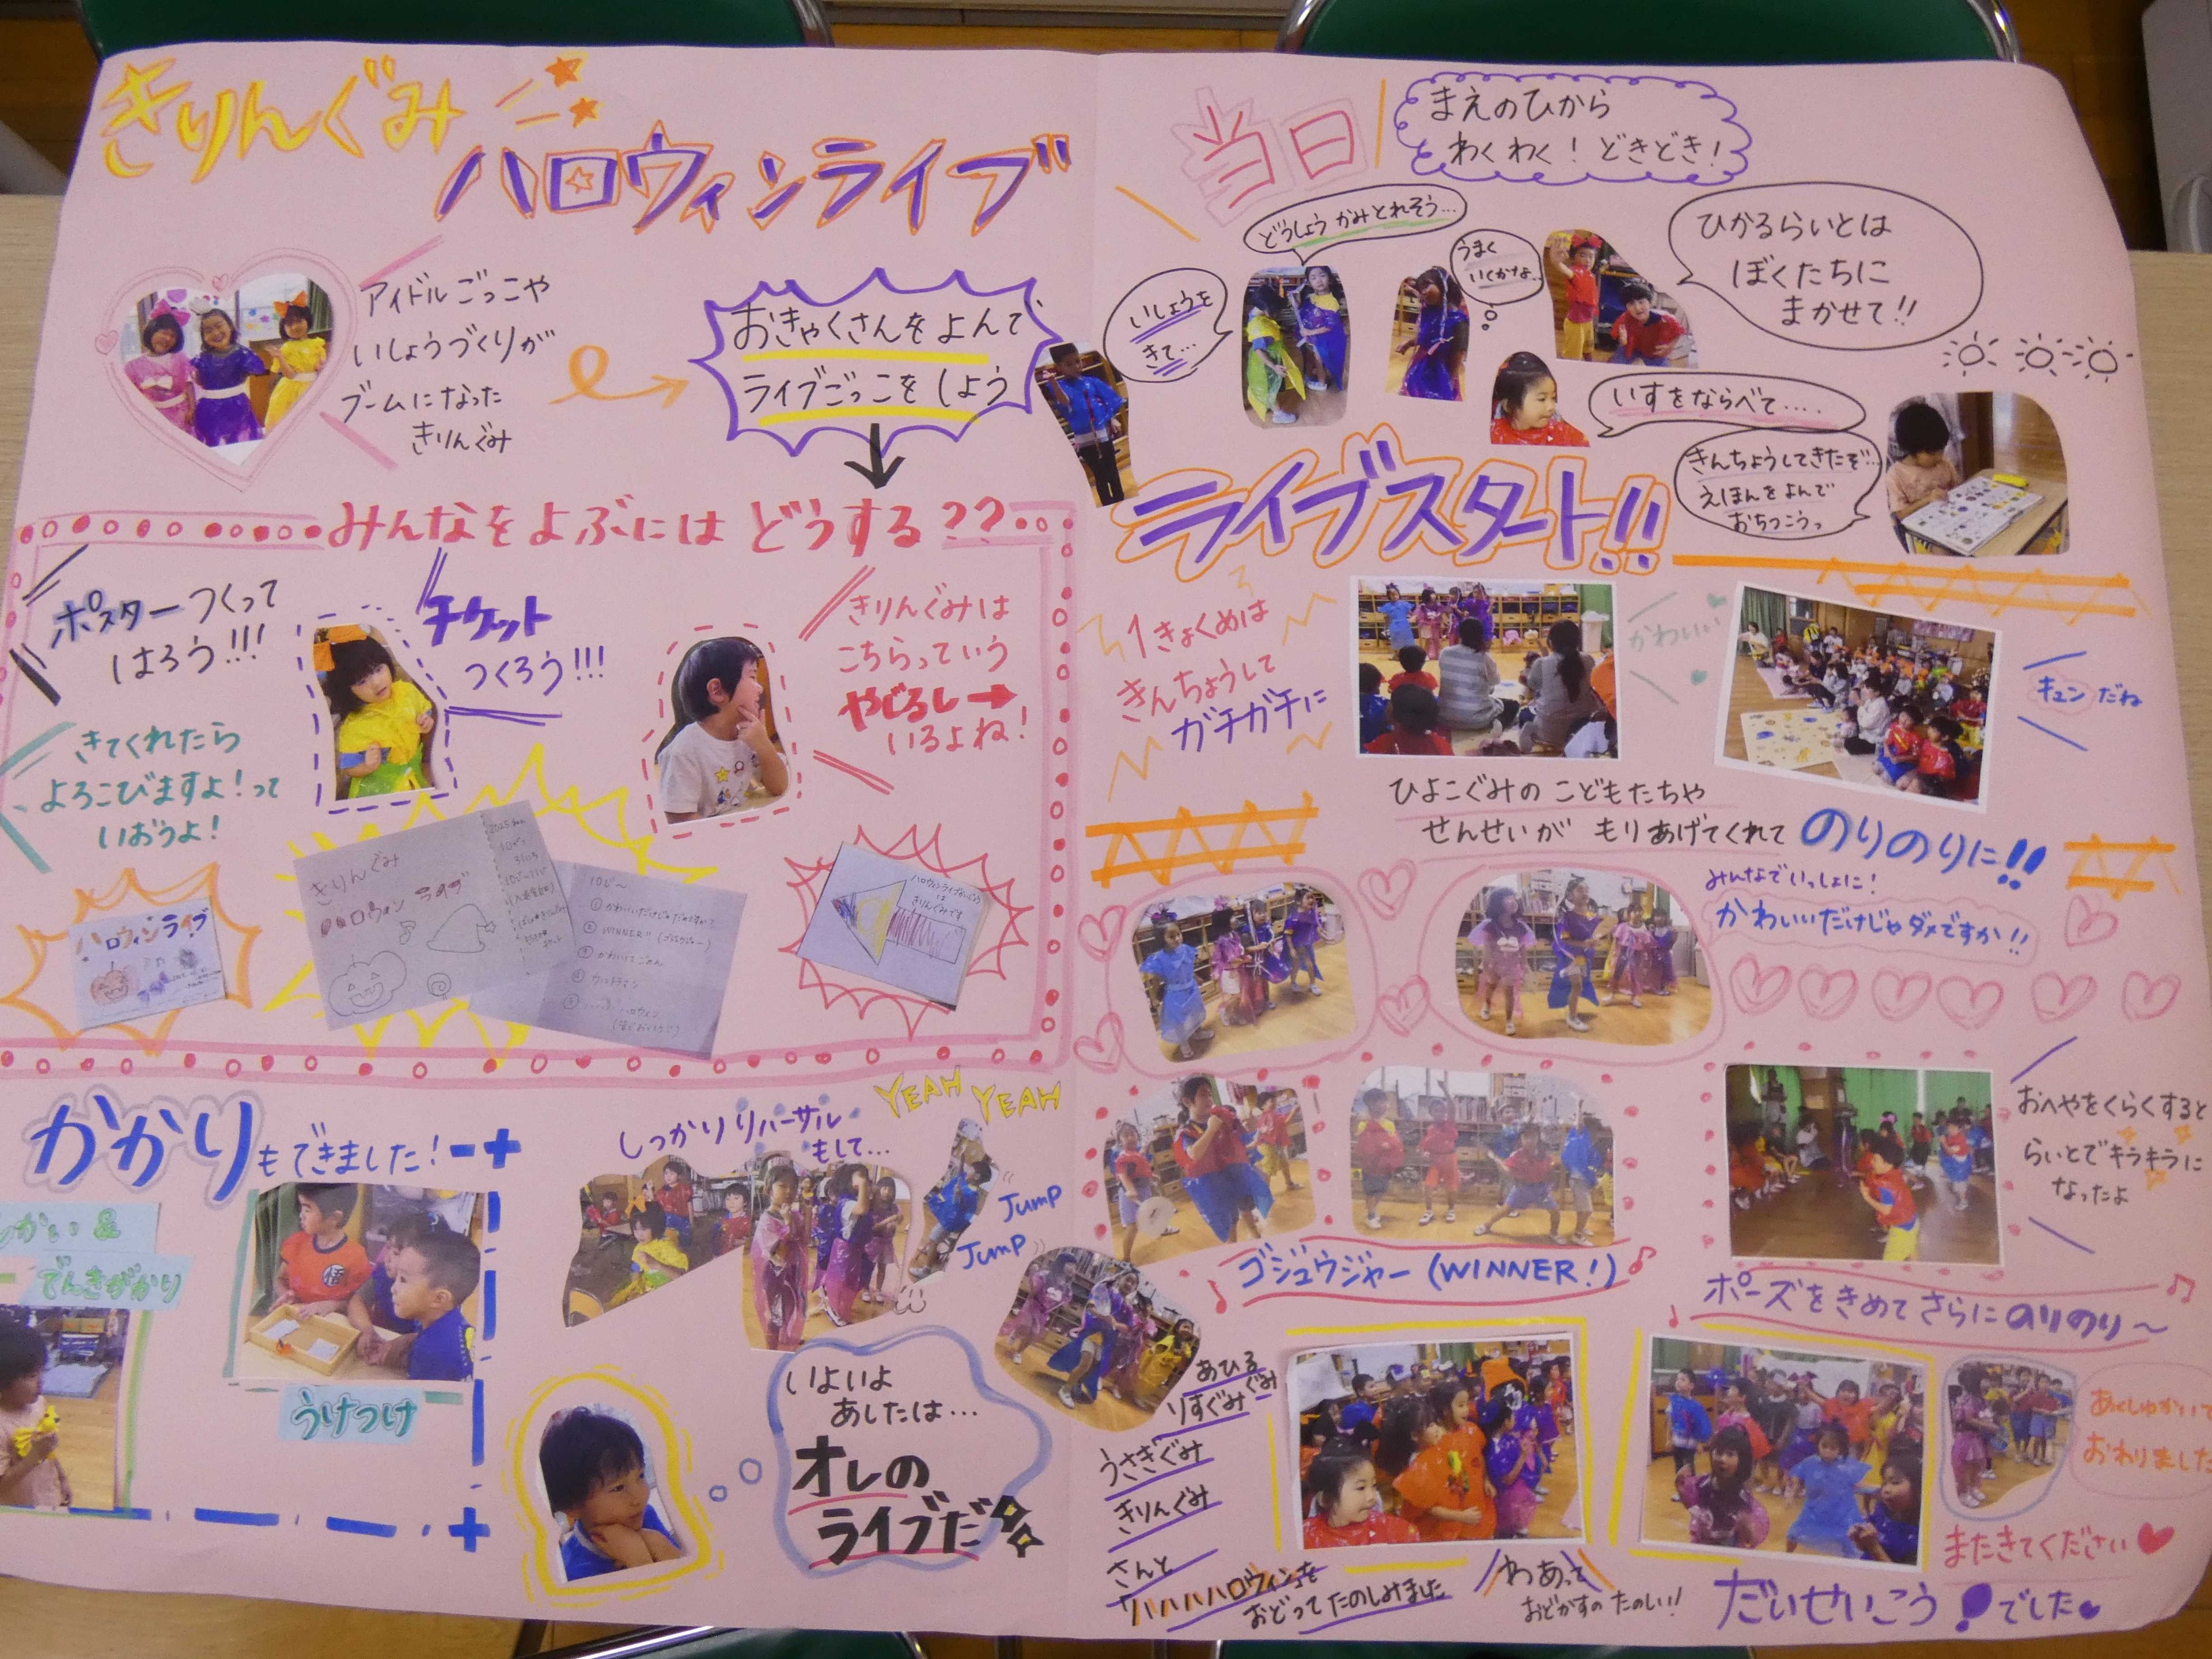 きりんぐみ
ハロウィンライブ
アイドルごっこや
いしょうづくりが
ブームになった
きりんぐみ
おきゃくさんをよんで
ライブごっこをしよう
みんなをよぶには どうする??
ポスターつくって
はろう!!!
チケット
つくろう!!!
きりんぐみは
こちらっていう
やじるし→
いるよね!
きてくれたら
よろこびますよ!って
いおうよ!
ハロウィンライブ
きりんぐみ
ハロウィン ライブ
10じ〜
①かわいいだけじゃだめですか?
②WINNER!(ゴジュウジャー)
ハロウィンライブ
は
きりんぐみです
かかりもできました!
でんきがかり
うけつけ
しっかりリハーサル
もして...
YEAH YEAH
Jump
Jump
いよいよ
あしたは...
オレの
ライブだ
当日
まえのひから
わくわく!どきどき!
いしょうを
きて...
どうしよう かみとれそう...
うまく
いくかな..
ひかるらいとは
ぼくたちに
まかせて!!
いすをならべて....
きんちょうしてきたぞ...
えほんをよんで
おちつこうっ
ライブスタート!!
1きょくめは
きんちょうして
ガチガチに
かわいい
キュンだね
ひよこぐみの こどもたちや
せんせいが もりあげてくれて のりのりに!!
みんなでいっしょに!
かわいいだけじゃダメですか!!
ゴジュウジャー(WINNER!)
おへやをくらくすると
らいとでキラキラに
なったよ
ポーズをきめて さらに のりのり〜
あひるぐみ
りすぐみ
うさぎぐみ
きりんぐみ
さんと
「ハハハハロウィン」を
おどってたのしみました
わあって
おどかすの たのしい!
あくしゅかいで
おわりました
またきてください
だいせいこう!でした